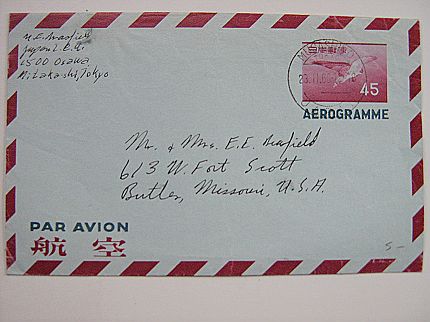 Japan I.C.U.
1500 Osawa
Mitaka-shi, Tokyo
日本郵便
45
AEROGRAMME
Mr. & Mrs. E.E.
613 W. Fort Scott
Butler, Missouri, U.S.A.
PAR AVION
航空
5-